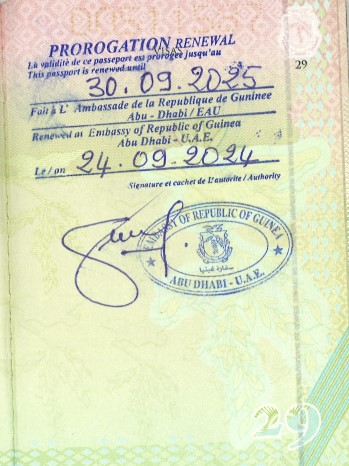 PROROGATION RENEWAL
VISAS
La validité de ce passeport est prorogée jusqu'au
This passport is renewed until
29
30.09.2025
Fait à L' Ambassade de la Republique de Guninee
Abu - Dhabi / EAU
Renewed at Embassy of Republic of Guinea
Abu Dhabi - U.A.E.
Le / on 24.09.2024
Signature et cachet de L'autorite / Authority
EMBASSY OF REPUBLIC OF GUINEA
سفارة غينيا
ABU DHABI - U.A.E.
29